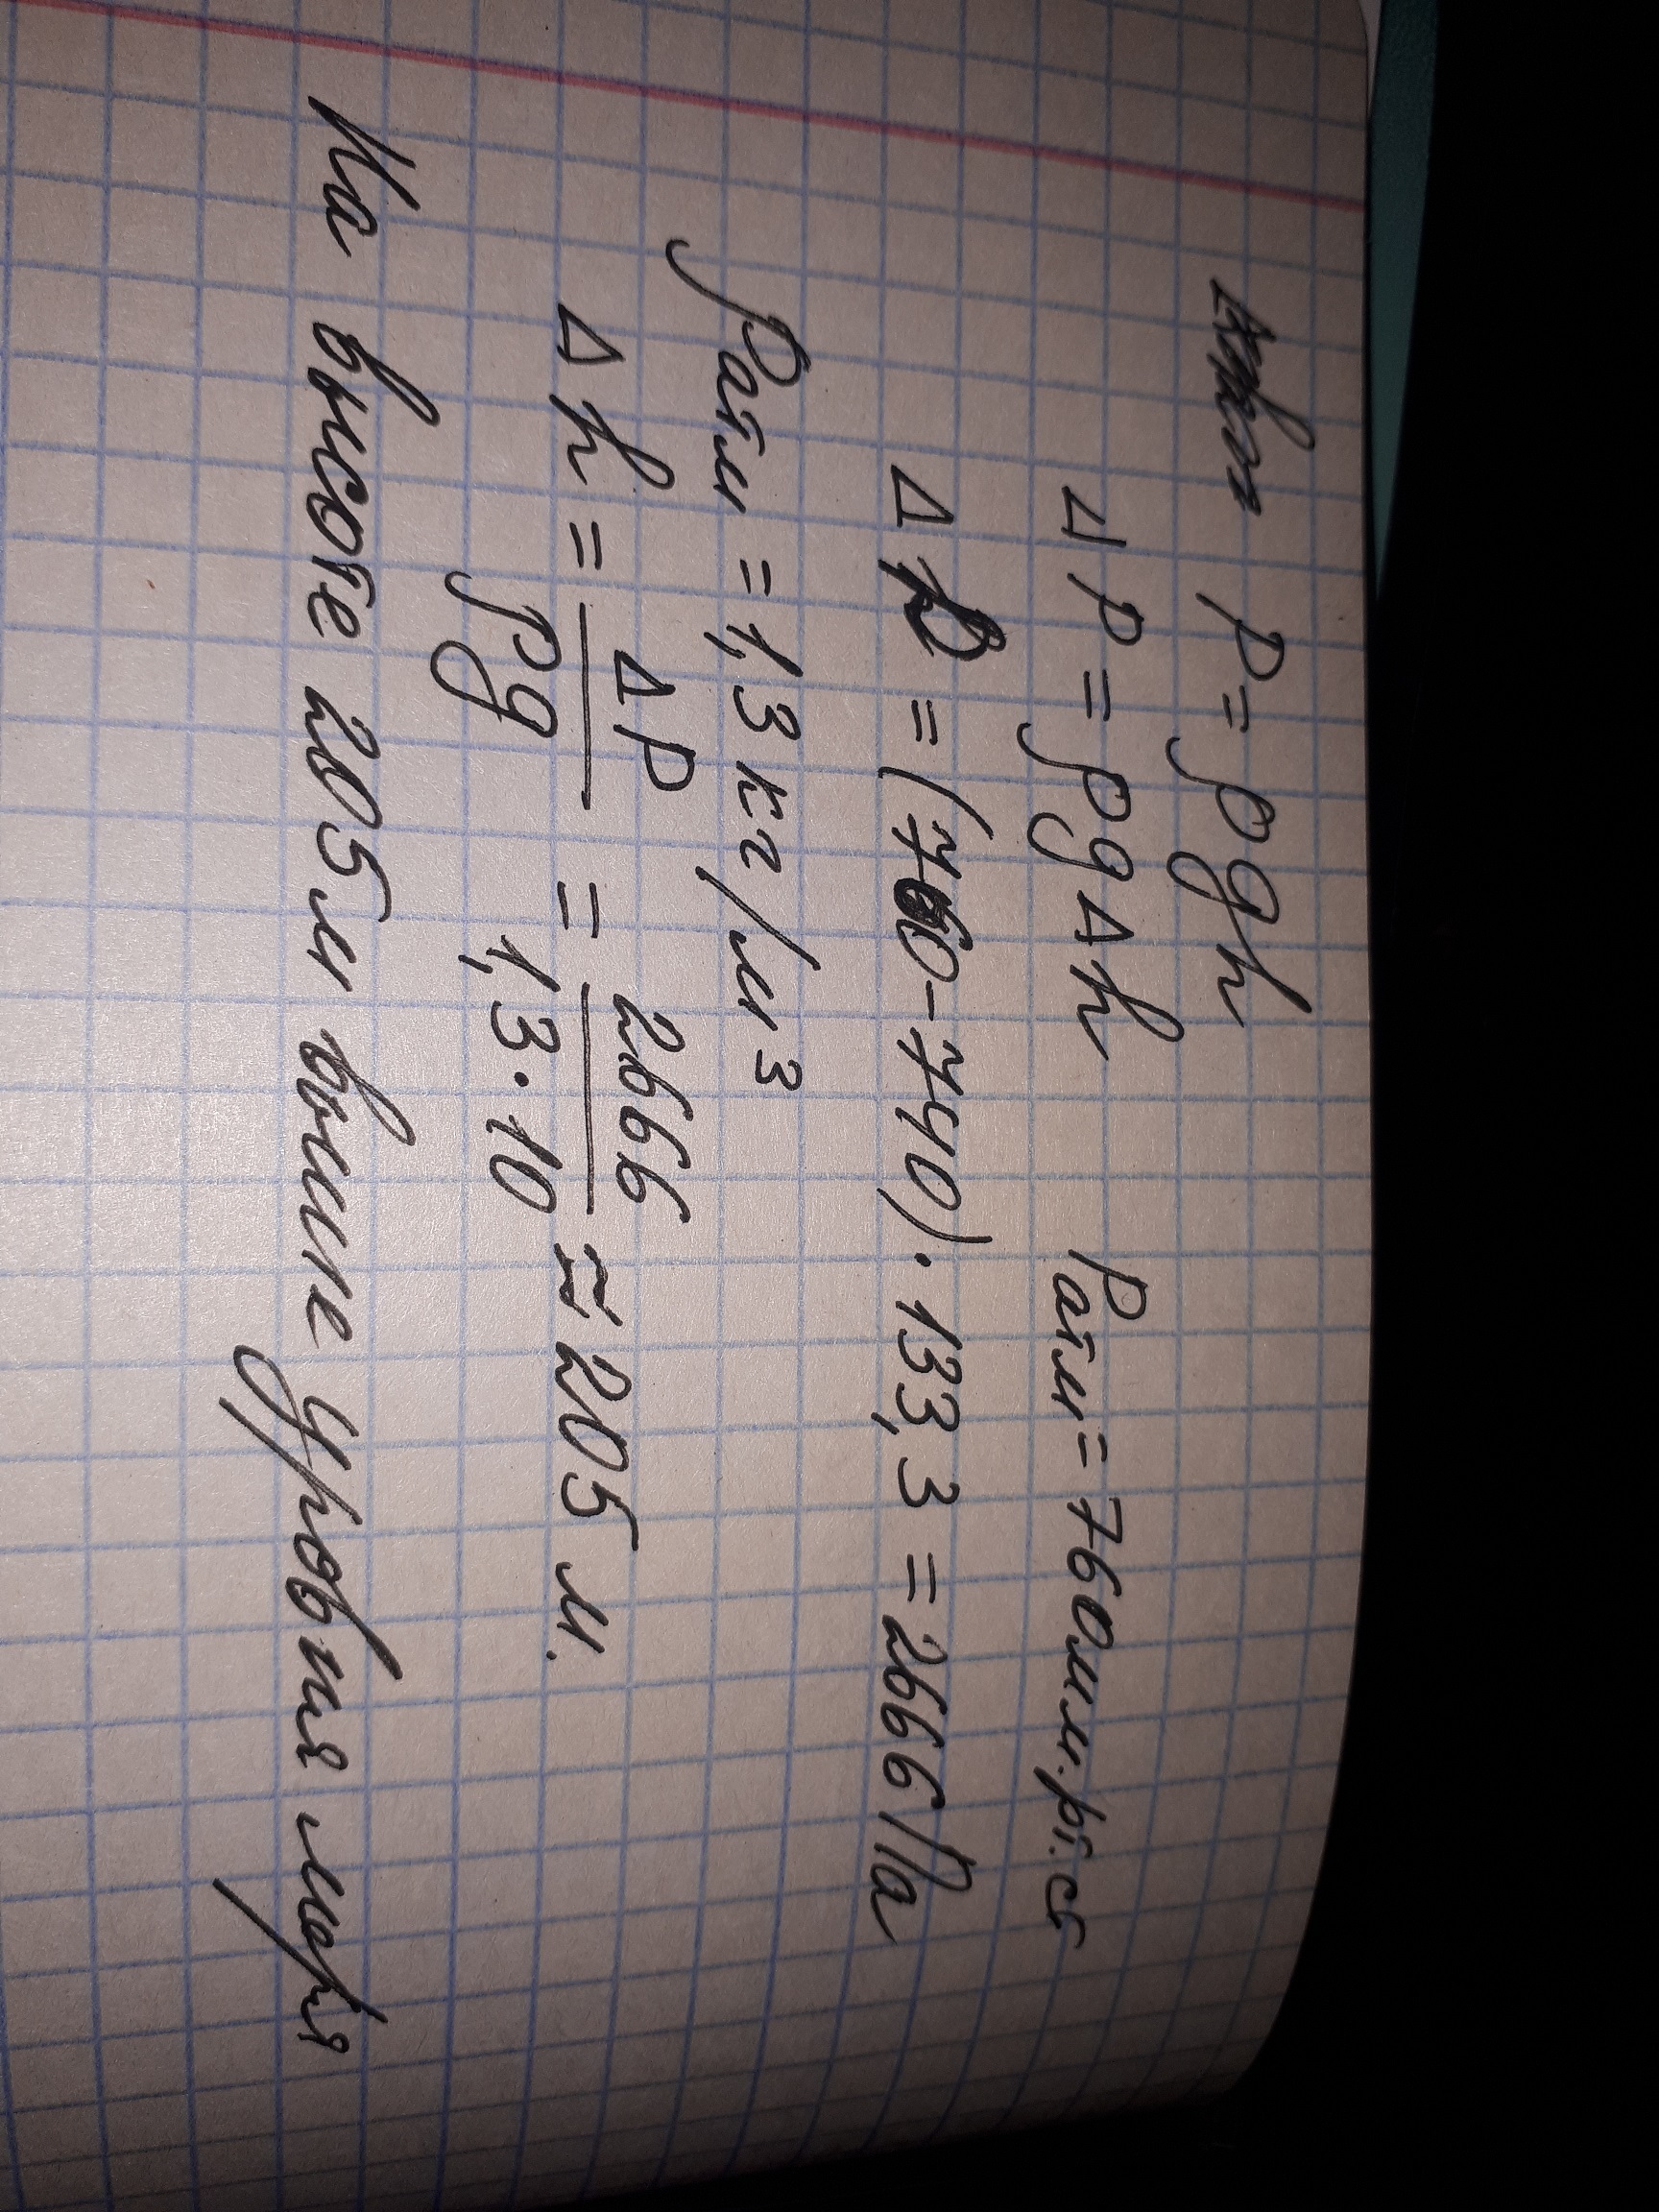 P = ρgh
ΔP = ρgΔh Pатм = 760мм.рт.ст
ΔP = (760-740)·133,3 = 2666 Па
ρатм = 1,3 кг/м³
Δh = ΔP/ρg = 2666/1,3·10 ≈ 205 м.
На высоте 205м выше уровня моря